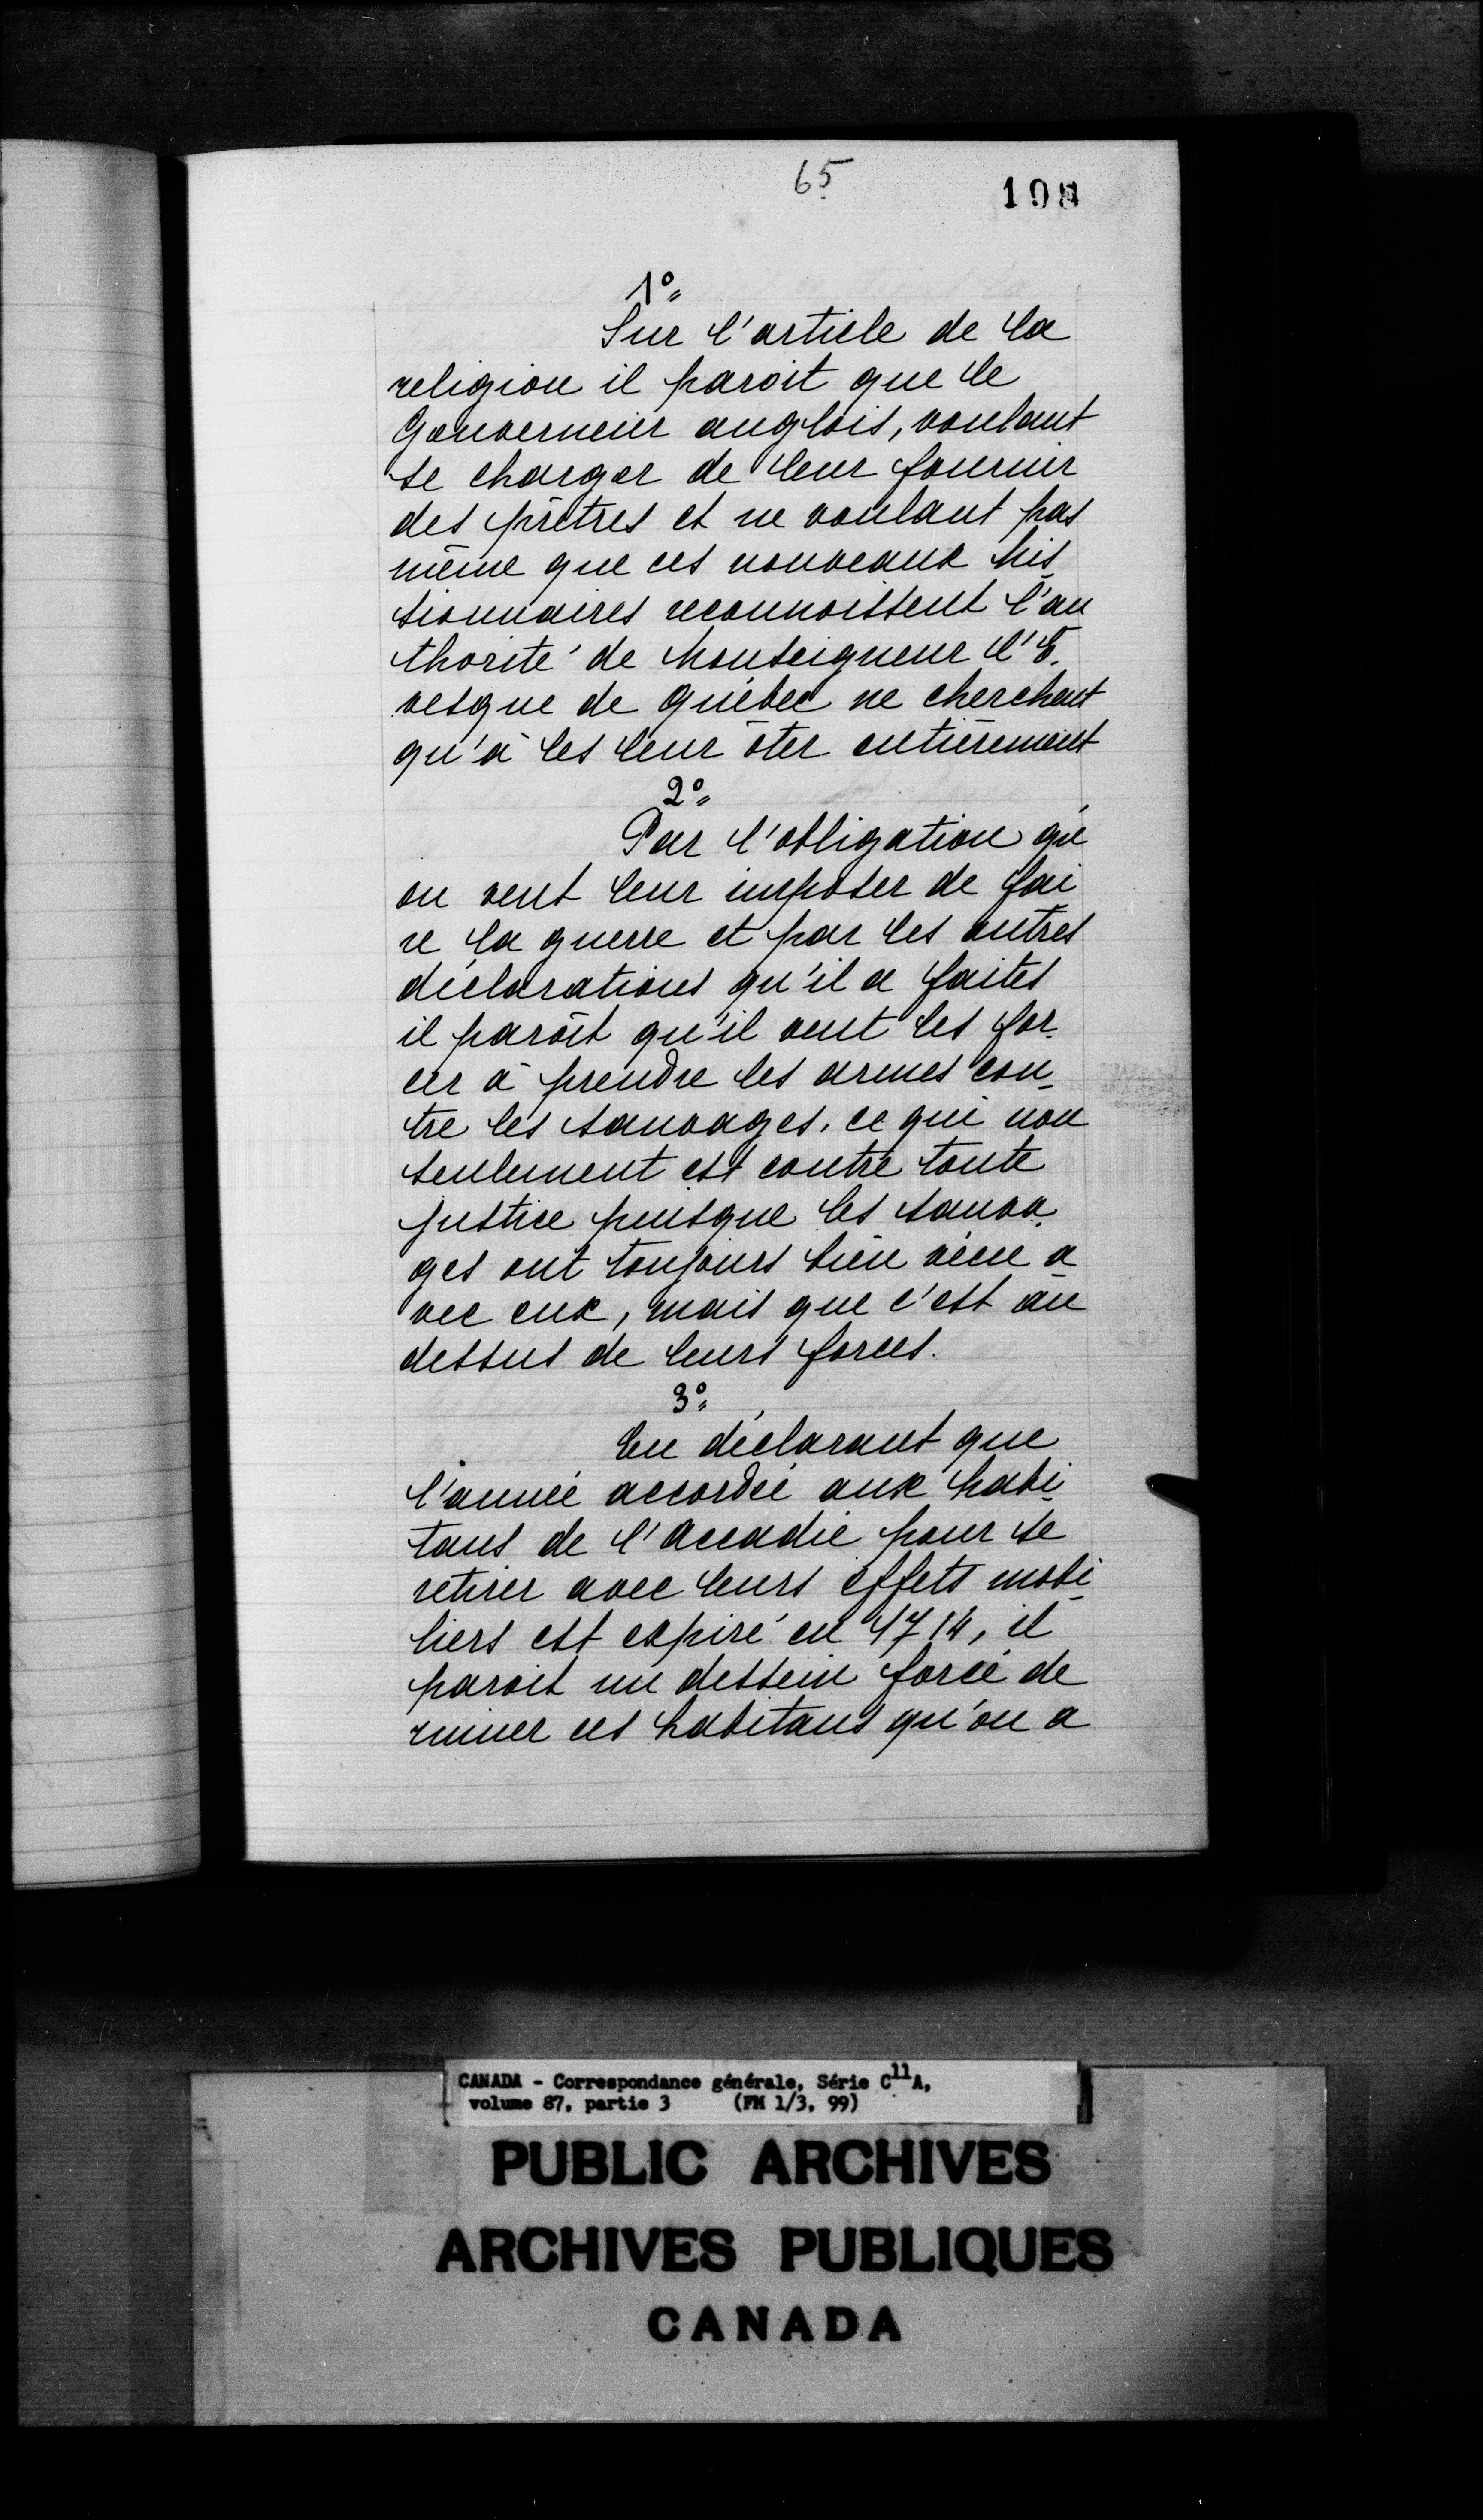 65
1º
Sur l'article de la
religion il paroit que le
Gouverneur anglois, voulant
se charger de leur fournir
des prêtres et ne voulant pas
même que ces nouveaux Mis
sionnaires reconnoissent l'au
thorité de Monseigneur l'E.
vesque de Québec ne cherchent
qu'à les leur ôter entièrement
2º
Par l'obligation qu'
on veut leur imposer de fai
re la guerre et par les autres
déclarations qu'il a faites
il paroît qu'il veut les for-
cer à prendre les armes con-
tre les sauvages, ce qui non
seulement est contre toute
justice puisque les sauva-
ges ont toujours bien vécu a
vec eux, mais que c'est au
dessus de leurs forces.
3º
En déclarant que
l'année accordée aux habi-
tans de l'Accadie pour se
retirer avec leurs effets mobi-
liers est expiré en 1714, il
paroit un dessein forcé de
ruiner ces habitans qu'on a
CANADA - Correspondance générale, Série C11A,
volume 87, partie 3 (FM 1/3, 99)
PUBLIC ARCHIVES
ARCHIVES PUBLIQUES
CANADA